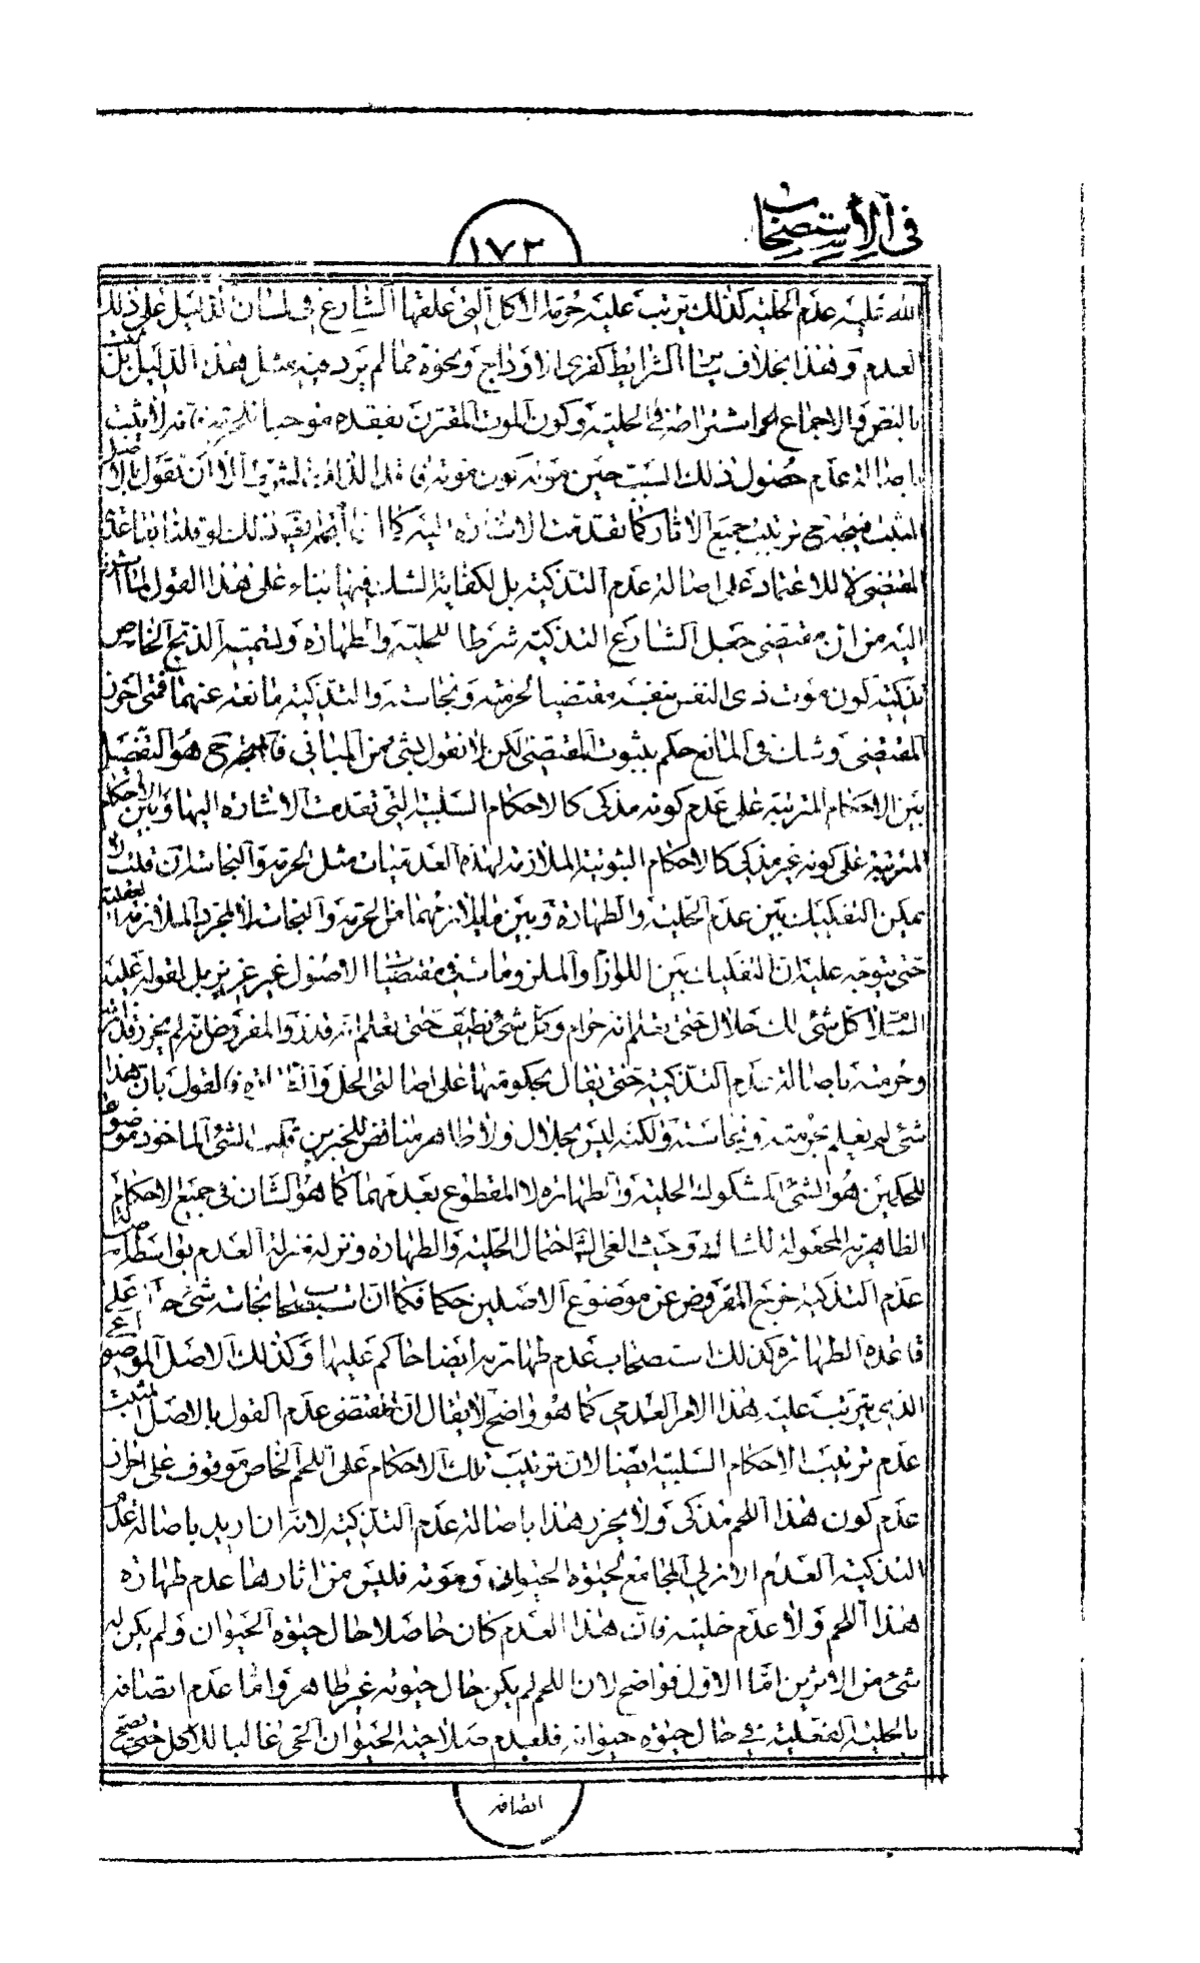 في الاستصحاب
١٧٣
الله عليه عدم الحلية كذلك يترتب عليه حرمة الاكل التي علقها الشارع في لسان الدليل على ذلك
العدم وهذا بخلاف سائر الشرايط كفرى الاوداج ونحوه مما لم يرد فيه مثل هذا الدليل بل ثبت
بالنص والاجماع اشتراطه في الحلية وكون الموت المقترن بفقده موجبا للحرمة فلا يثبت
باصالة عدم حصول ذلك السبب حين موته كون موته الا ان نقول بالاصل
المثبت فيتجه ح ترتيب جميع الاثار كما تقدمت الاشارة اليه كما انا ذلك لو قلنا بقاعدة
المقتضى لا للاعتماد على اصالة عدم التذكية بل لكفاية الشك فيها بناء على هذا القول لما اشرنا
اليه من ان مقتضى جعل الشارع التذكية شرطا للحلية والطهارة وتسميته الذبح الخاص
تذكية كون موت ذي النفس بنفسه مقتضيا لحرمته ونجاسته والتذكية مانعه عنهما فمتى احرز
المقتضى وشك في المانع حكم بثبوت المقتضى لكن لا نقول بشئ من المباني فالمتجه ح هو التفصيل
بين الاحكام المترتبة على عدم كونه مذكى كالاحكام السلبية التي تقدمت الاشارة اليها وبين الاحكام
المترتبة على كونه غير مذكى كالاحكام الثبوتية الملازمة لهذه العدميات مثل الحرمة والنجاسة ان قلت لا
يمكن التفكيك بين عدم الحلية والطهارة وبين ما يلازمهما من الحرمة والنجاسة لا لمجرد الملازمة العقلية
حتى يتوجه عليه ان التفكيك بين اللوازم والملزومات في مقتضيات الاصول غير عزيز بل لقوله عليه
السلام كل شئ لك حلال حتى تعلم انه حرام وكل شئ نظيف حتى تعلم انه قذر والمفروض انه لم يحرز قذارته
وحرمته باصالة عدم التذكية حتى يقال بحكومتها على اصالتي الحل والطهارة والقول بان هذا
شئ لم يعلم بحرمته ونجاسته ولكنه ليس بحلال ولا طاهر مناقض للخبرين قلت الشئ المأخوذ موضوعا
للحكمين هو الشئ المشكوك الحلية والطهارة لا المقطوع بعدمهما كما هو الشان في جميع الاحكام
الظاهرية المجعولة للشاك وحيث الغى الشارع احتمال الحلية والطهارة ونزله منزلة العدم بواسطة اصالة
عدم التذكية خرج المفروض عن موضوع الاصلين حكما فكما ان استصحاب نجاسة شئ حاكم على
قاعدة الطهارة كذلك استصحاب عدم طهارته ايضا حاكم عليها وكذلك الاصل الموضوعي
الذي يترتب عليه هذا الامر العدمي كما هو واضح لا يقال ان مقتضى عدم القول بالاصل المثبت
عدم ترتيب الاحكام السلبية ايضا لان ترتيب تلك الاحكام على اللحم الخاص موقوف على احراز
عدم كون هذا اللحم مذكى ولا يحرز هذا باصالة عدم التذكية لانه ان اريد باصالة عدم
التذكية العدم الازلي المجامع لحيوة الحيوان وموته فليس من اثارها عدم طهارة
هذا اللحم ولا عدم حليته فان هذا العدم كان حاصلا حال حيوة الحيوان ولم يكن له
شئ من الاثرين اما الاول فواضح لان اللحم لم يكن حال حيوته غير طاهر واما عدم اتصافه
بالحلية الفعلية في حال حيوة حيوانه فلعدم صلاحية الحيوان الحي غالبا للاكل حتى يصح
اتصافه